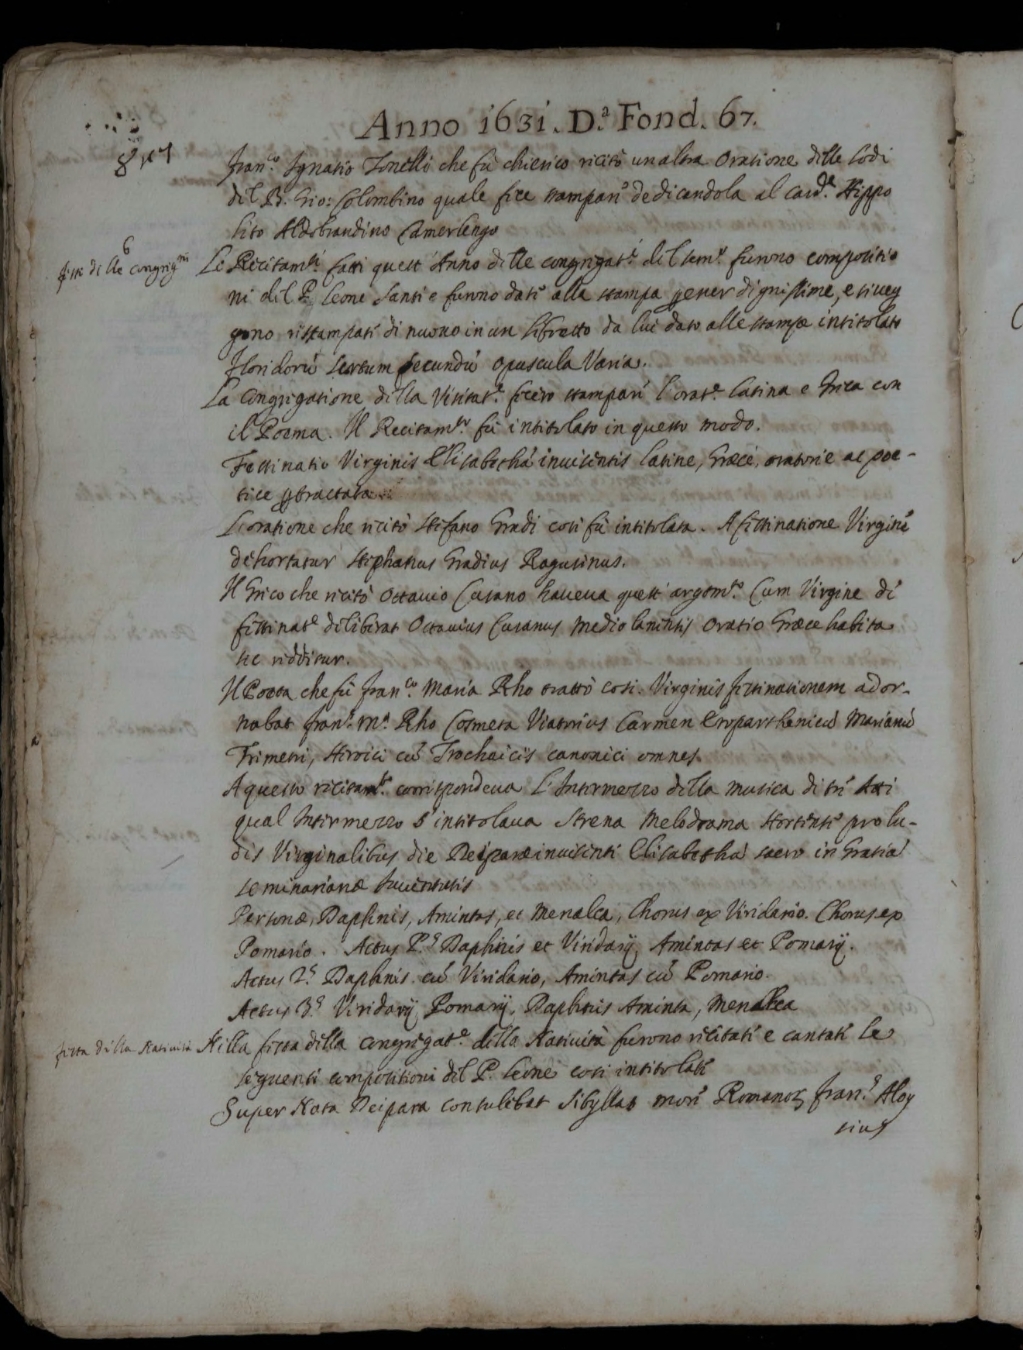 Anno 1631. D.ª Fond. 67.
8bre 7
Franc.º Ignatio Tonelli che fù chierico recitò un altra oratione delle lodi
del B. Gio: Colombino quale fece stampare dedicandola al Card.le Hippo
lito Aldobrandino Camerlengo
feste delle congreg.ni
Le Recitam.ti fatti quest'Anno delle congregat.i del Sem.º furono compositio
ni del P. Leone Santi e furono dati alla stampa p esser dignissime, e si veg
gono ristampati di nuovo in un libretto da lui dato alle stampe intitolato
Floridorũ Sertum secundũ opuscula Varia.
La Congregatione della Visitat.e fecero stampare l'orat.e latina e Greca con
il Poema. Il Recitam.to fù intitolato in questo modo.
Festinatio Virginis Elisabethã invisentis latine, Græcè, oratoriè ac poe-
tice ptractata.
L'oratione che recitò Stefano Gradi così fù intitolata. A festinatione Virginẽ
dehortatur Stephanus Gradius Ragusinus.
Il Greco che recitò Ottavio Cusano haveva quest'argom.to Cum Virgine de
festinat.e deliberat Octavius Cusanus Mediolanensis Oratio Græce habita
sic redditur.
Il Poeta che fù Fran.co Maria Rho trattò così. Virginis festinationem ador-
nabat Fran.s M.a Rho Cosmeta Viatorius Carmen Eroparthenicũ Marianũ
Trimetri, Heroici cũ Trochaicis canonici omnes.
A questo recitam.to corrispondeva L'Intermezzo della musica di trè Atti
qual Intermezzo s'intitolava Strena Melodrama Hortensis prolu-
dis Virginalibus die Deiparæ invisenti Elisabethã sacro in Gratiã
seminarianæ Iuventutis
Personæ, Daphnis, Amintas, et Menalca, Chorus ex Viridario. Chorus ex
Pomario. Actus P.s Daphnis et Viridarij Amintas et Pomarij.
Actus 2.s Daphnis cũ Viridario, Amintas cũ Pomario.
Actus 3.s Viridarij Pomarij, Daphnis Aminta, Menalca
festa della Natività
Nella festa della congregat.e della Natività furono recitati e cantati le
seguenti compositioni del P. Leone così intitolati
Super Nata Deipara consulebat Sibyllas more Romanoꝝ Fran.s Aloy
sius